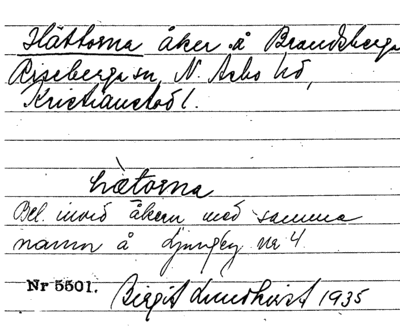 Hättorna åker å Brandsberga
Riseberga sn, N. Åsbo hd,
Kristianstads l.
hætorna
Bel. invid åkern med samma
namn å Ljungby nr 4.
Nr 5501. Birgit Lundkvist 1935